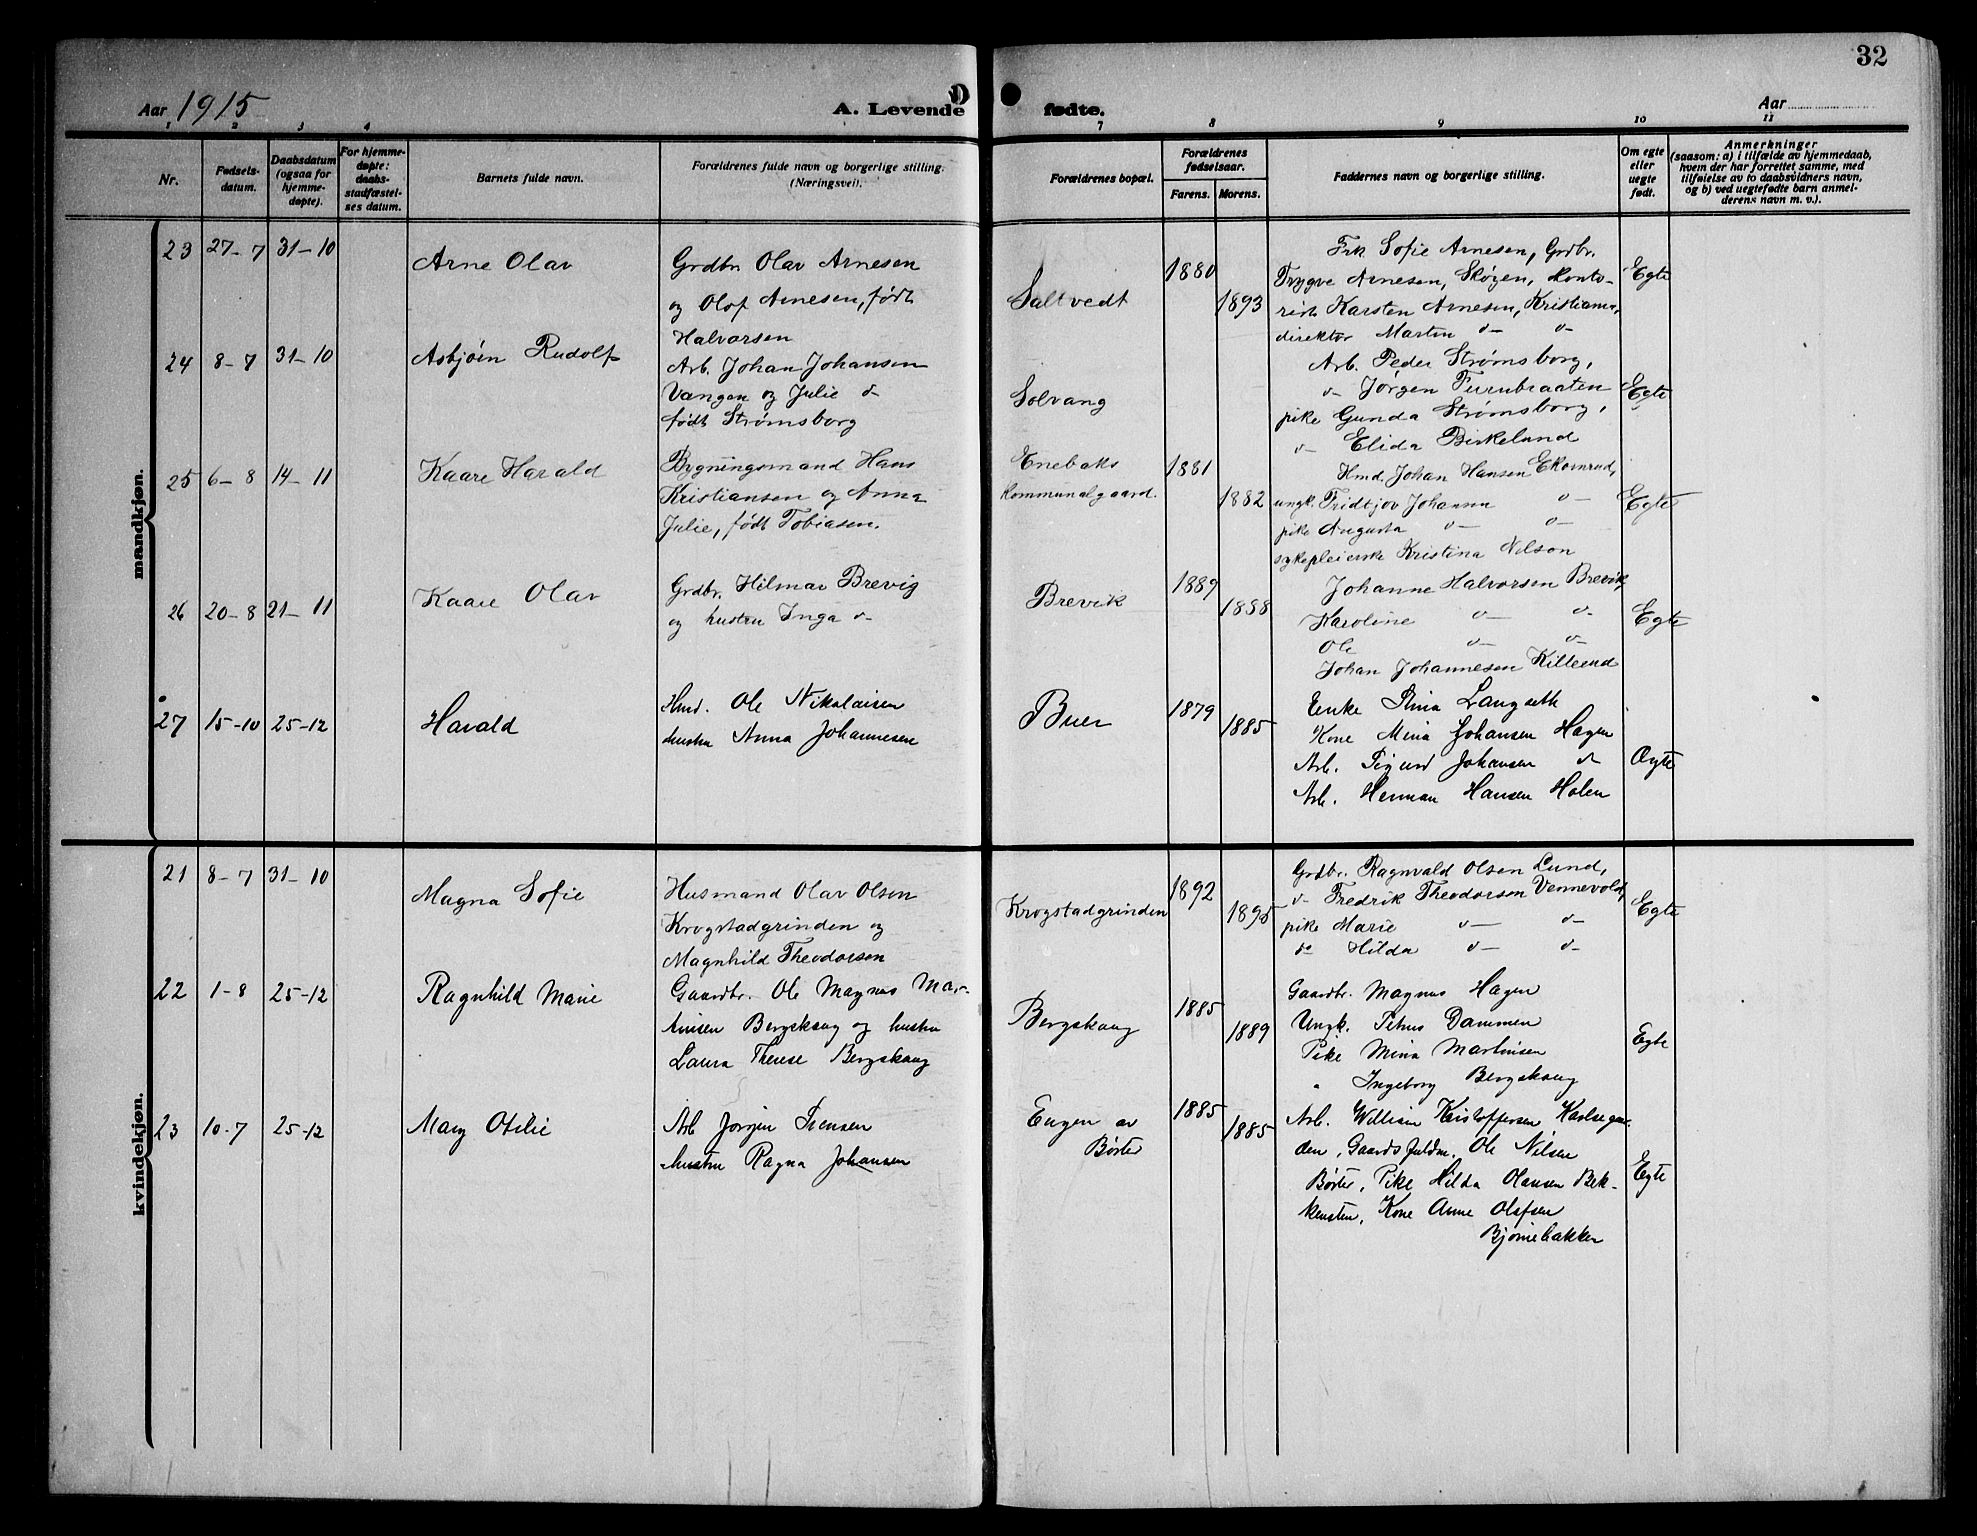 32
Aar 1915 A. Levende fødte. Aar
1 2 3 4 7 8 9 10 11
Nr.
Fødsels-
datum.
Daabsdatum
(ogsaa for
hjemme-
døpte).
For hjemme-
døpte:
daabs-
stadfæstel-
ses datum.
Barnets fulde navn.
Forældrenes fulde navn og borgerlige stilling.
(Næringsvei).
Forældrenes bopæl.
Forældrenes
fødselsaar.
Farens. Morens.
Faddernes navn og borgerlige stilling.
Om egte
eller
uegte
født.
Anmerkninger
(saasom: a) i tilfælde av hjemmedaab,
hvem der har forrettet samme, med
tilføielse av to daabsvidners navn,
og b) ved uegtefødte barn anmel-
derens navn m. v.).
mandkjøn.
23 27-7 31-10
Arne Olav
Grdbr. Olav Arnesen
og Olof Arnesen, født
Halvorsen
Saltvedt
1880
1893
Frk Sofie Arnesen, Grdbr.
Trygve Arnesen, Skøyen, Konto-
rist Karsten Arnesen, Kristiania,
direktør Martin d- d-
Egte
24 8-7 31-10
Asbjørn Rudolf
Arb. Johan Johansen
Vangen og Julie d-
født Strømsborg
Solvang
Arb. Peder Strømsborg,
d- Jørgen Furubraaten
pike Gunda Strømsborg,
d- Elida Birkelund
Egte
25 6-8 14-11
Kaare Harald
Bygningsmand Hans
Kristiansen og Anna
Julie, født Tobiasen.
Enebaks
kommunalgaard.
1881
1882
Hmd. Johan Hansen Ekornrud,
ungk. Fridtjov Johannes d-
pike Augusta d- d-
sykepleierske Kristina Nilson
Egte
26 20-8 21-11
Kaare Olav
Grdbr. Hilmar Brevig
og hustru Inga d-
Brevik
1889
1888
Johanne Halvorsen Brevik,
Karoline d- d-
Ole d- d-
Johan Johannesen Killerud
Egte
27 15-10 25-12
Harald
Hmd. Ole Nikolaisen
hustru Anna Johannesen
Buer
1879
1885
Enke Stina Langseth
Kone Mina Johansen Hagen
Arb. Sigurd Johansen d-
Arb. Herman Hansen Holen
Ægte
kvindekjøn.
21 8-7 31-10
Magna Sofie
Husmand Olav Olsen
Krogstadgrinden og
Magnhild Theodorsen
Krogstadgrinden
1892
1895
Grdbr. Ragnvald Olsen Lund,
d- Fredrik Theodorsen Vennevold,
pike Marie d- d-
do Hilda d- d-
Egte
22 1-8 25-12
Ragnhild Marie
Gaardbr. Ole Magnus Mar-
tinsen Bergskaug og hustru
Laura Therese Bergskaug
Bergskaug
1885
1889
Gaardbr. Magnus Hagen
Ungk. Petrus Dammen
Pike Mina Martinsen
" Ingeborg Bergskaug
Egte
23 10-7 25-12
Mary Otilie
Arb Jørgen Svensen
hustru Ragna Johansen
Engen av
Børter
1885
1885
Arb. William Kristoffersen Karlsegar-
den, Gaardsfuldm. Ole Nilsen
Børter, Pike Hilda Olausen Bek-
kensten, Kone Anne Olafsen
Bjørnebakken
Egte